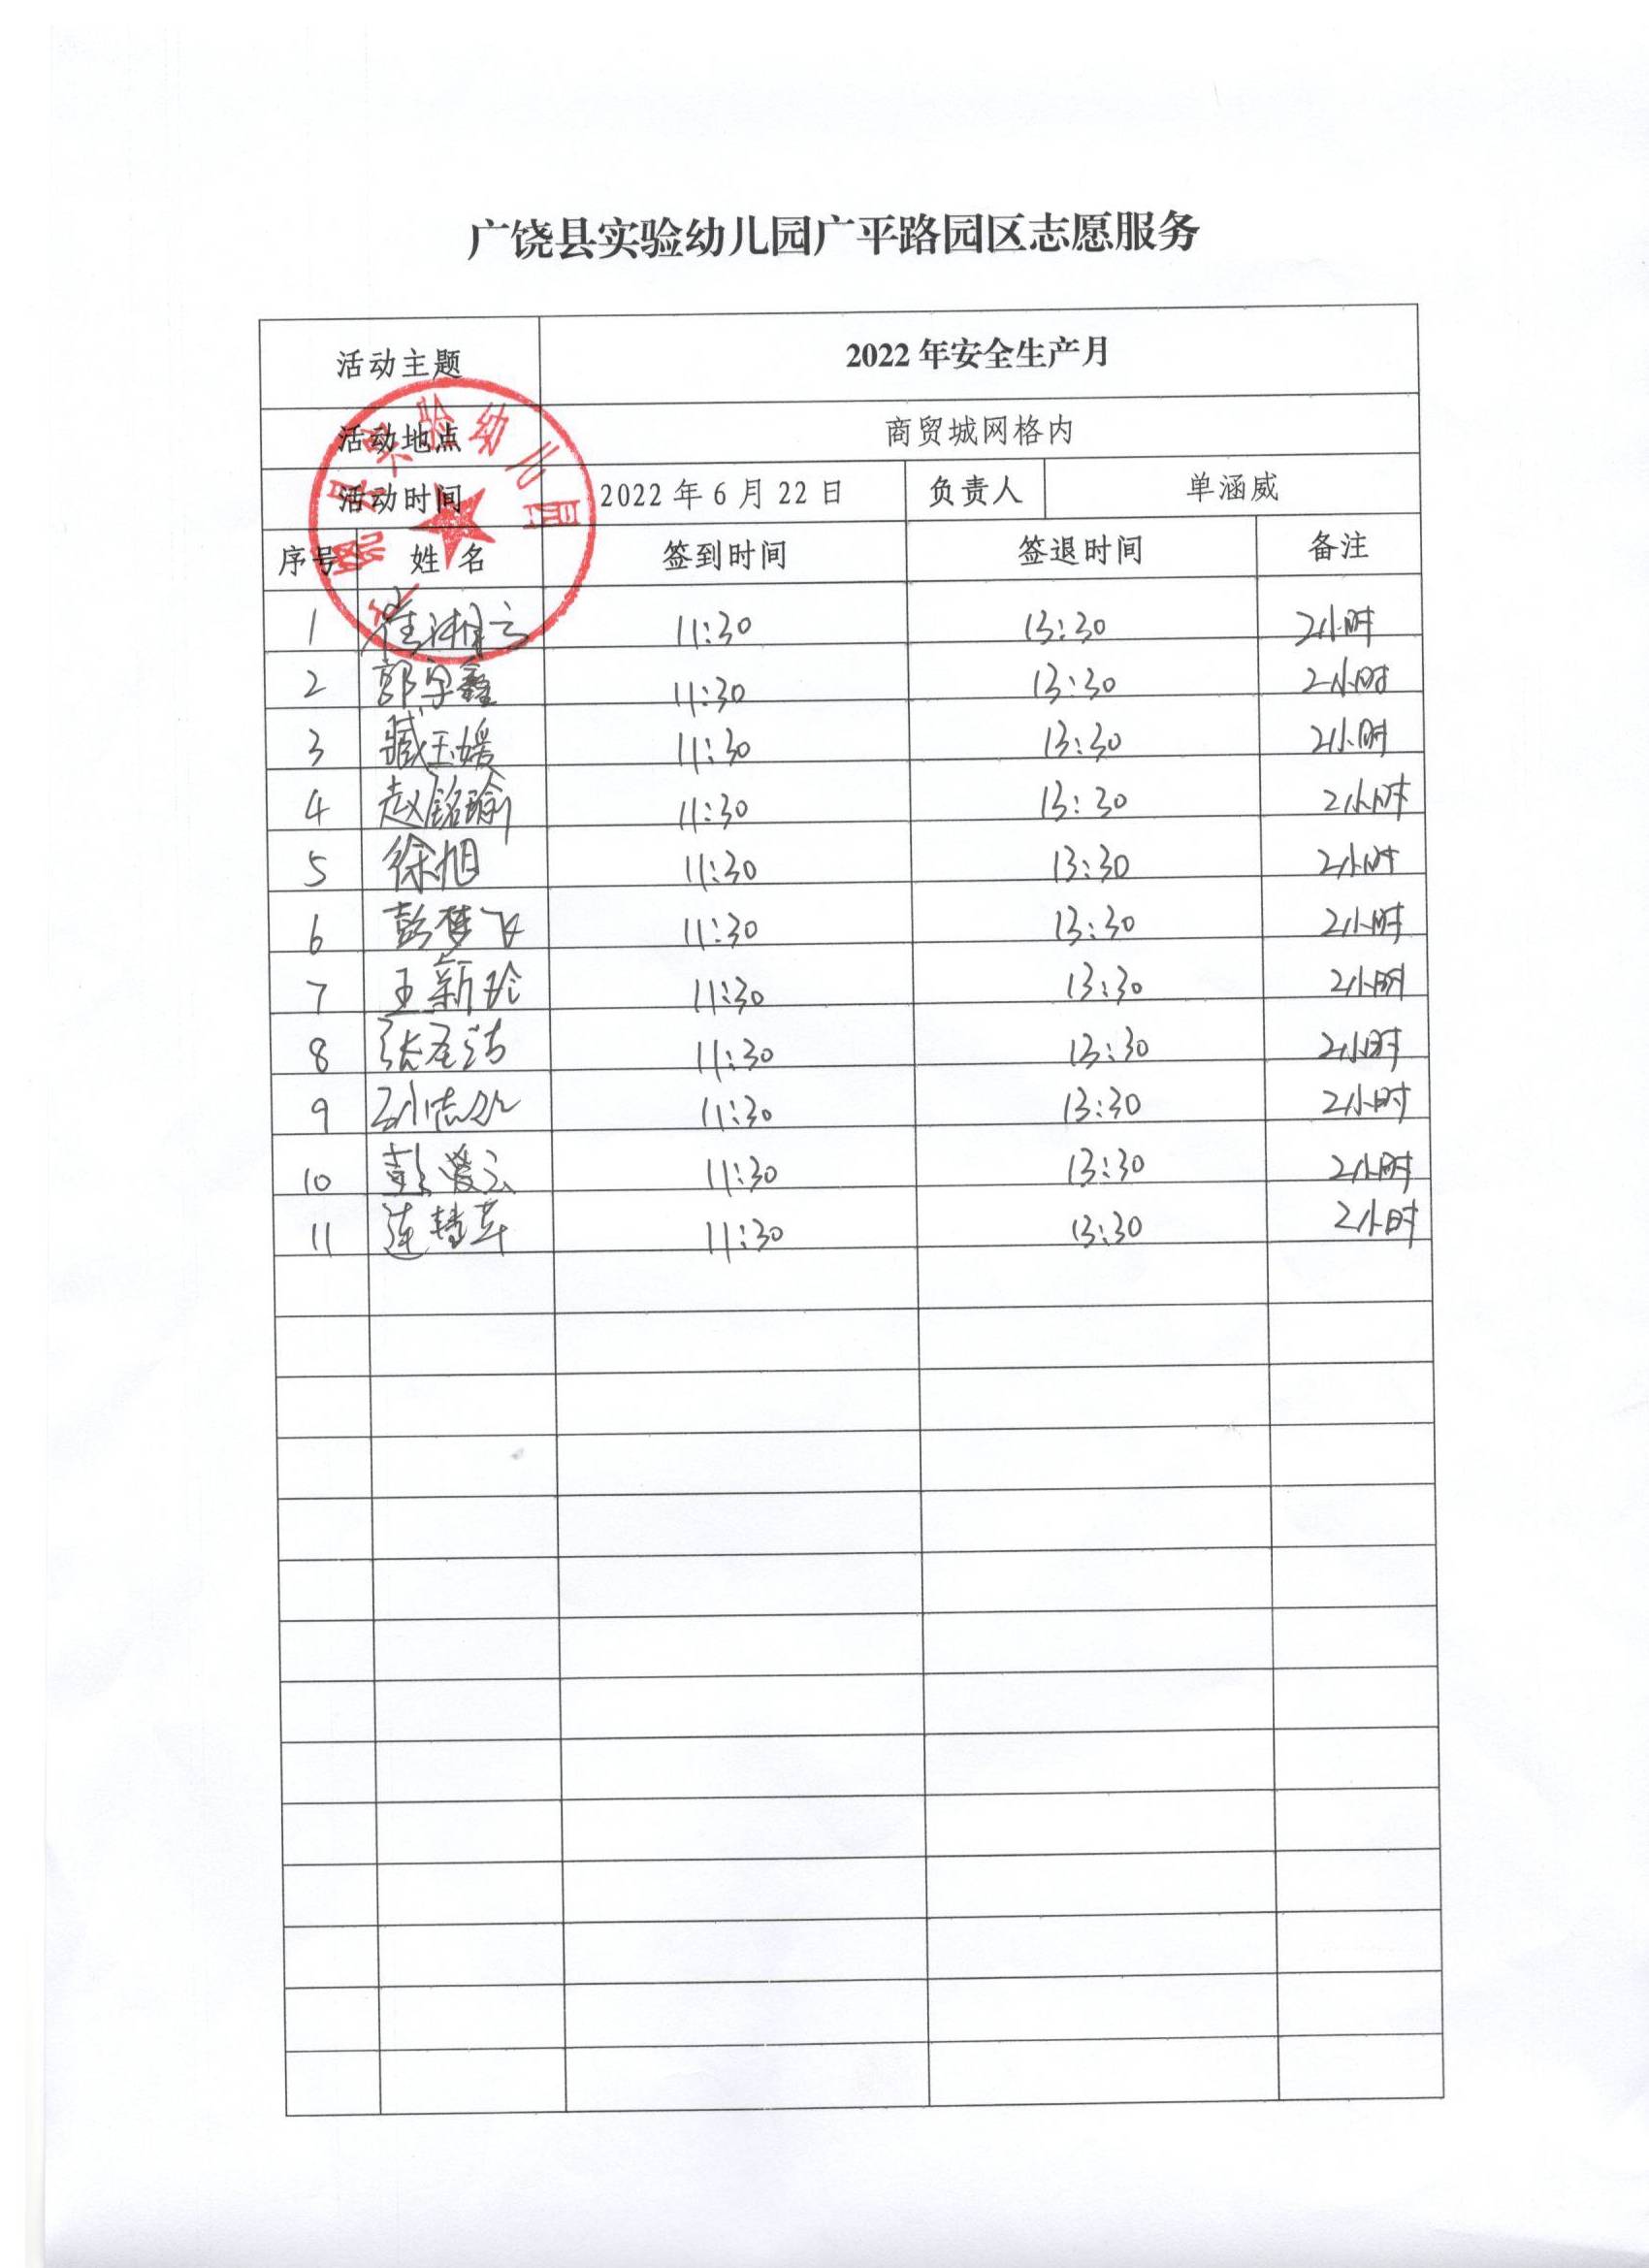 广饶县实验幼儿园广平路园区志愿服务
活动主题 2022年安全生产月
活动地点 商贸城网格内
活动时间 2022年6月22日 负责人 单涵威
序号 姓名 签到时间 签退时间 备注
1 崔 11:30 13:30 2小时
2 郭宇鑫 11:30 13:30 2小时
3 臧玉媛 11:30 13:30 2小时
4 赵铭瑜 11:30 13:30 2小时
5 徐旭 11:30 13:30 2小时
6 彭梦飞 11:30 13:30 2小时
7 王新玲 11:30 13:30 2小时
8 张圣洁 11:30 13:30 2小时
9 孙志 11:30 13:30 2小时
10 彭爱云 11:30 13:30 2小时
11 连慧萍 11:30 13:30 2小时
广饶县实验幼儿园